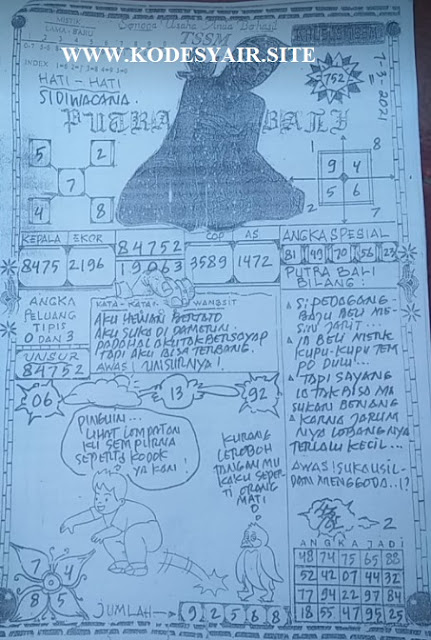 MISTIK
LAMA - BARU
Semoga Usaha Anda Berhasil
TSSM
WWW.KODESYAIR.SITE
INDEX 1=6 2=7 3=8 4=9 5=0
HATI - HATI
SIDIWACANA.
752
7-3-2021
PUTRA BALI
5 2
7
4 8
1 8
9 4
5 6
2 7
KEPALA EKOR
8475 2196
84752
19063
COP AS
3589 1472
ANGKA SPESIAL
81 49 70 56 23
PUTRA BALI
BILANG:
ANGKA
PELUANG
TIPIS
0 DAN 3
UNSUR
84752
KATA - KATA WANGSIT
AKU HEWAN BERTATO
AKU SUKA DI
PADAHAL AKU TAK BERSAYAP
TAPI AKU BISA TERBANG.
AWAS! UNSURNYA!
SI PEDAGANG
BAJU BELI ME-
SIN JAHIT...
IA BELI MERK
KUPU-KUPU TEM
PO DULU...
TAPI SAYANG
IA TAK BISA MA
SUKAN BENANG
KARNA JARUM
NYA LOBANGNYA
TERLALU KECIL...
AWAS! SUKA USIL
DAN MENGGODA..!?
06
13
92
PINGUIN...
LIHAT LOMPATAN
KU SEMPURNA
SEPERTI KODOK
YA KAN!
KURANG
LEBOH
TANGAN MU
KAKU SEPER
TI ORANG
MATI
2
ANGKA JADI
48 74 75 65 88
52 42 07 44 32
77 94 22 97 84
18 55 47 95 25
7 4
8 5
JUMLAH
9 2 5 6 8